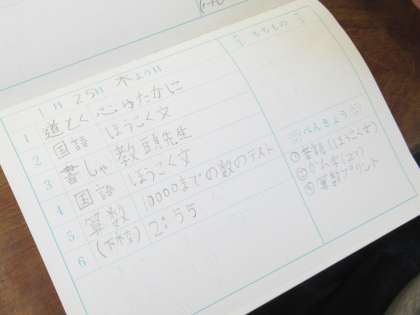 1月25日 木よう日
1 道とく 心ゆたかに
2 国語 ほうこく文
3 書しゃ 教頭先生
4 国語 ほうこく文
5 算数 10000までの数のテスト
6 (下校) 2:55
もちもの
べんきょう
①音読(ほうこく文)
③算数プリント